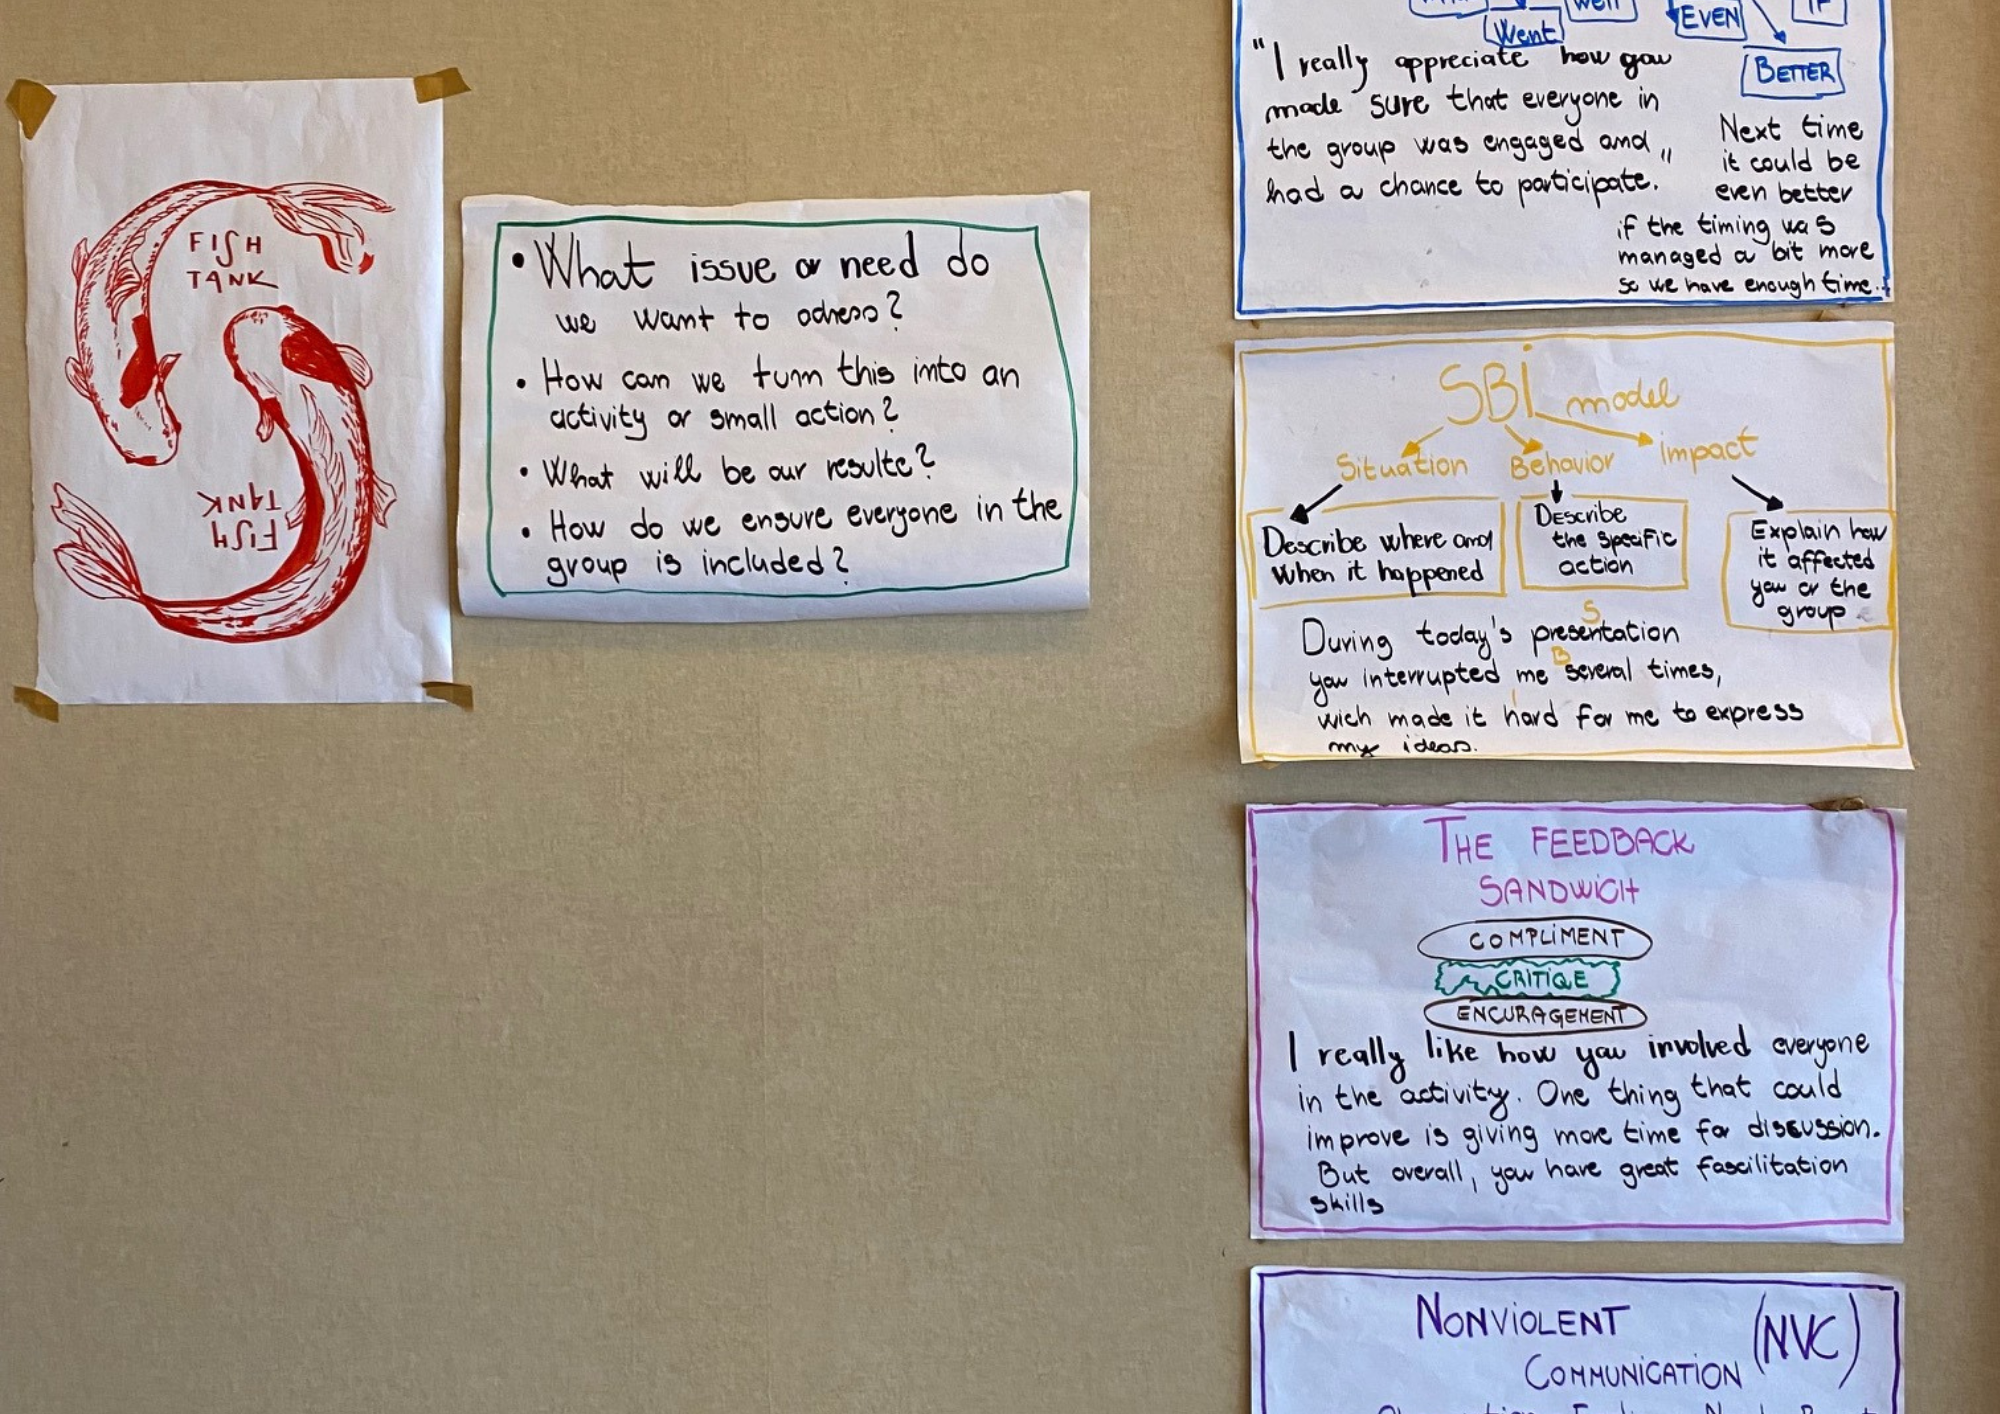 FISH
TANK
FISH
TANK
• What issue or need do
we want to adress?
• How can we turn this into an
activity or small action?
• What will be our results?
• How do we ensure everyone in the
group is included?
Well
IF
Went
EVEN
BETTER
"I really appreciate how you
made sure that everyone in
the group was engaged and
had a chance to participate."
Next time
it could be
even better
if the timing was
managed a bit more
so we have enough time.
SBI model
Situation Behavior Impact
Describe where and
when it happened
Describe
the specific
action
Explain how
it affected
you or the
group
S
During today's presentation
B
you interrupted me several times,
I
wich made it hard for me to express
my ideas.
THE FEEDBACK
SANDWICH
COMPLIMENT
CRITIQE
ENCURAGEMENT
I really like how you involved everyone
in the activity. One thing that could
improve is giving more time for discussion.
But overall, you have great fascilitation
skills
NONVIOLENT (NVC)
COMMUNICATION